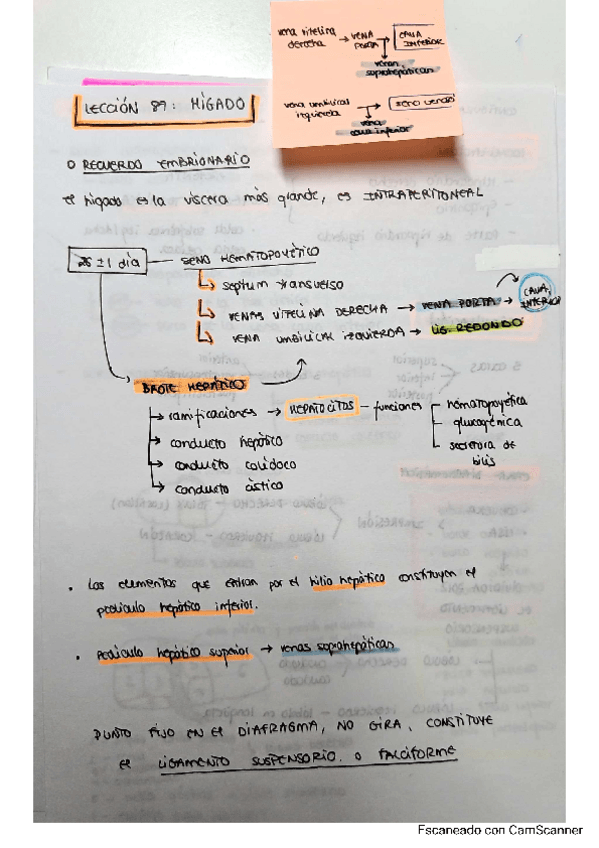 vena vitelina
derecha → VENA
PORTA → CAVA
INFERIOR
venas
suprahepáticas
vena umbilical
izquierda → seno venoso
vena
cava inferior
LECCIÓN 89: HÍGADO
o RECUERDO EMBRIONARIO
el hígado es la víscera más grande, es INTRAPERITONEAL
±1 día — SENO HEMATOPOYÉTICO
↳ septum transverso
↳ VENAS VITELINA DERECHA → VENA PORTA → CAVA INFERIOR
↳ VENA UMBILICAL IZQUIERDA → LIG. REDONDO
BROTE HEPÁTICO
→ ramificaciones → HEPATOCITOS – funciones – hematopoyética
glucogénica
secretora de
bilis
→ conducto hepático
→ conducto colédoco
→ conducto cístico
• Los elementos que entran por el hilio hepático constituyen el
pedículo hepático inferior.
• Pedículo hepático superior → venas suprahepáticas
PUNTO FIJO EN EL DIAFRAGMA, NO GIRA, CONSTITUYE
EL LIGAMENTO SUSPENSORIO O FALCIFORME
Escaneado con CamScanner